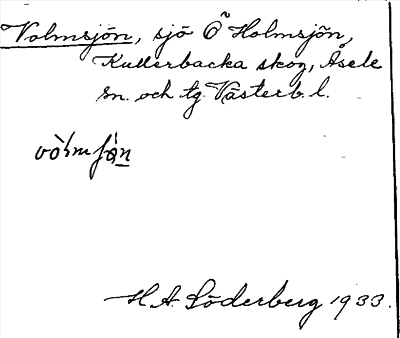 Volmsjön, sjö Ö Holmsjön,
Kullerbacka skog, Åsele
sn. och tg. Västerb. l.
vòlmʃǝ̀n
H. A. Söderberg 1933.